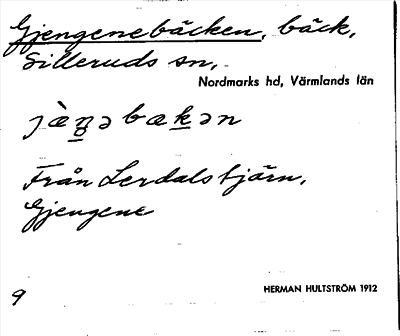 Gjengenebäcken, bäck,
Silleruds sn,
Nordmarks hd, Värmlands län
jàŋ̲ə bæk̲ən
Från Lerdalstjärn,
Gjengene
HERMAN HULTSTRÖM 1912
9